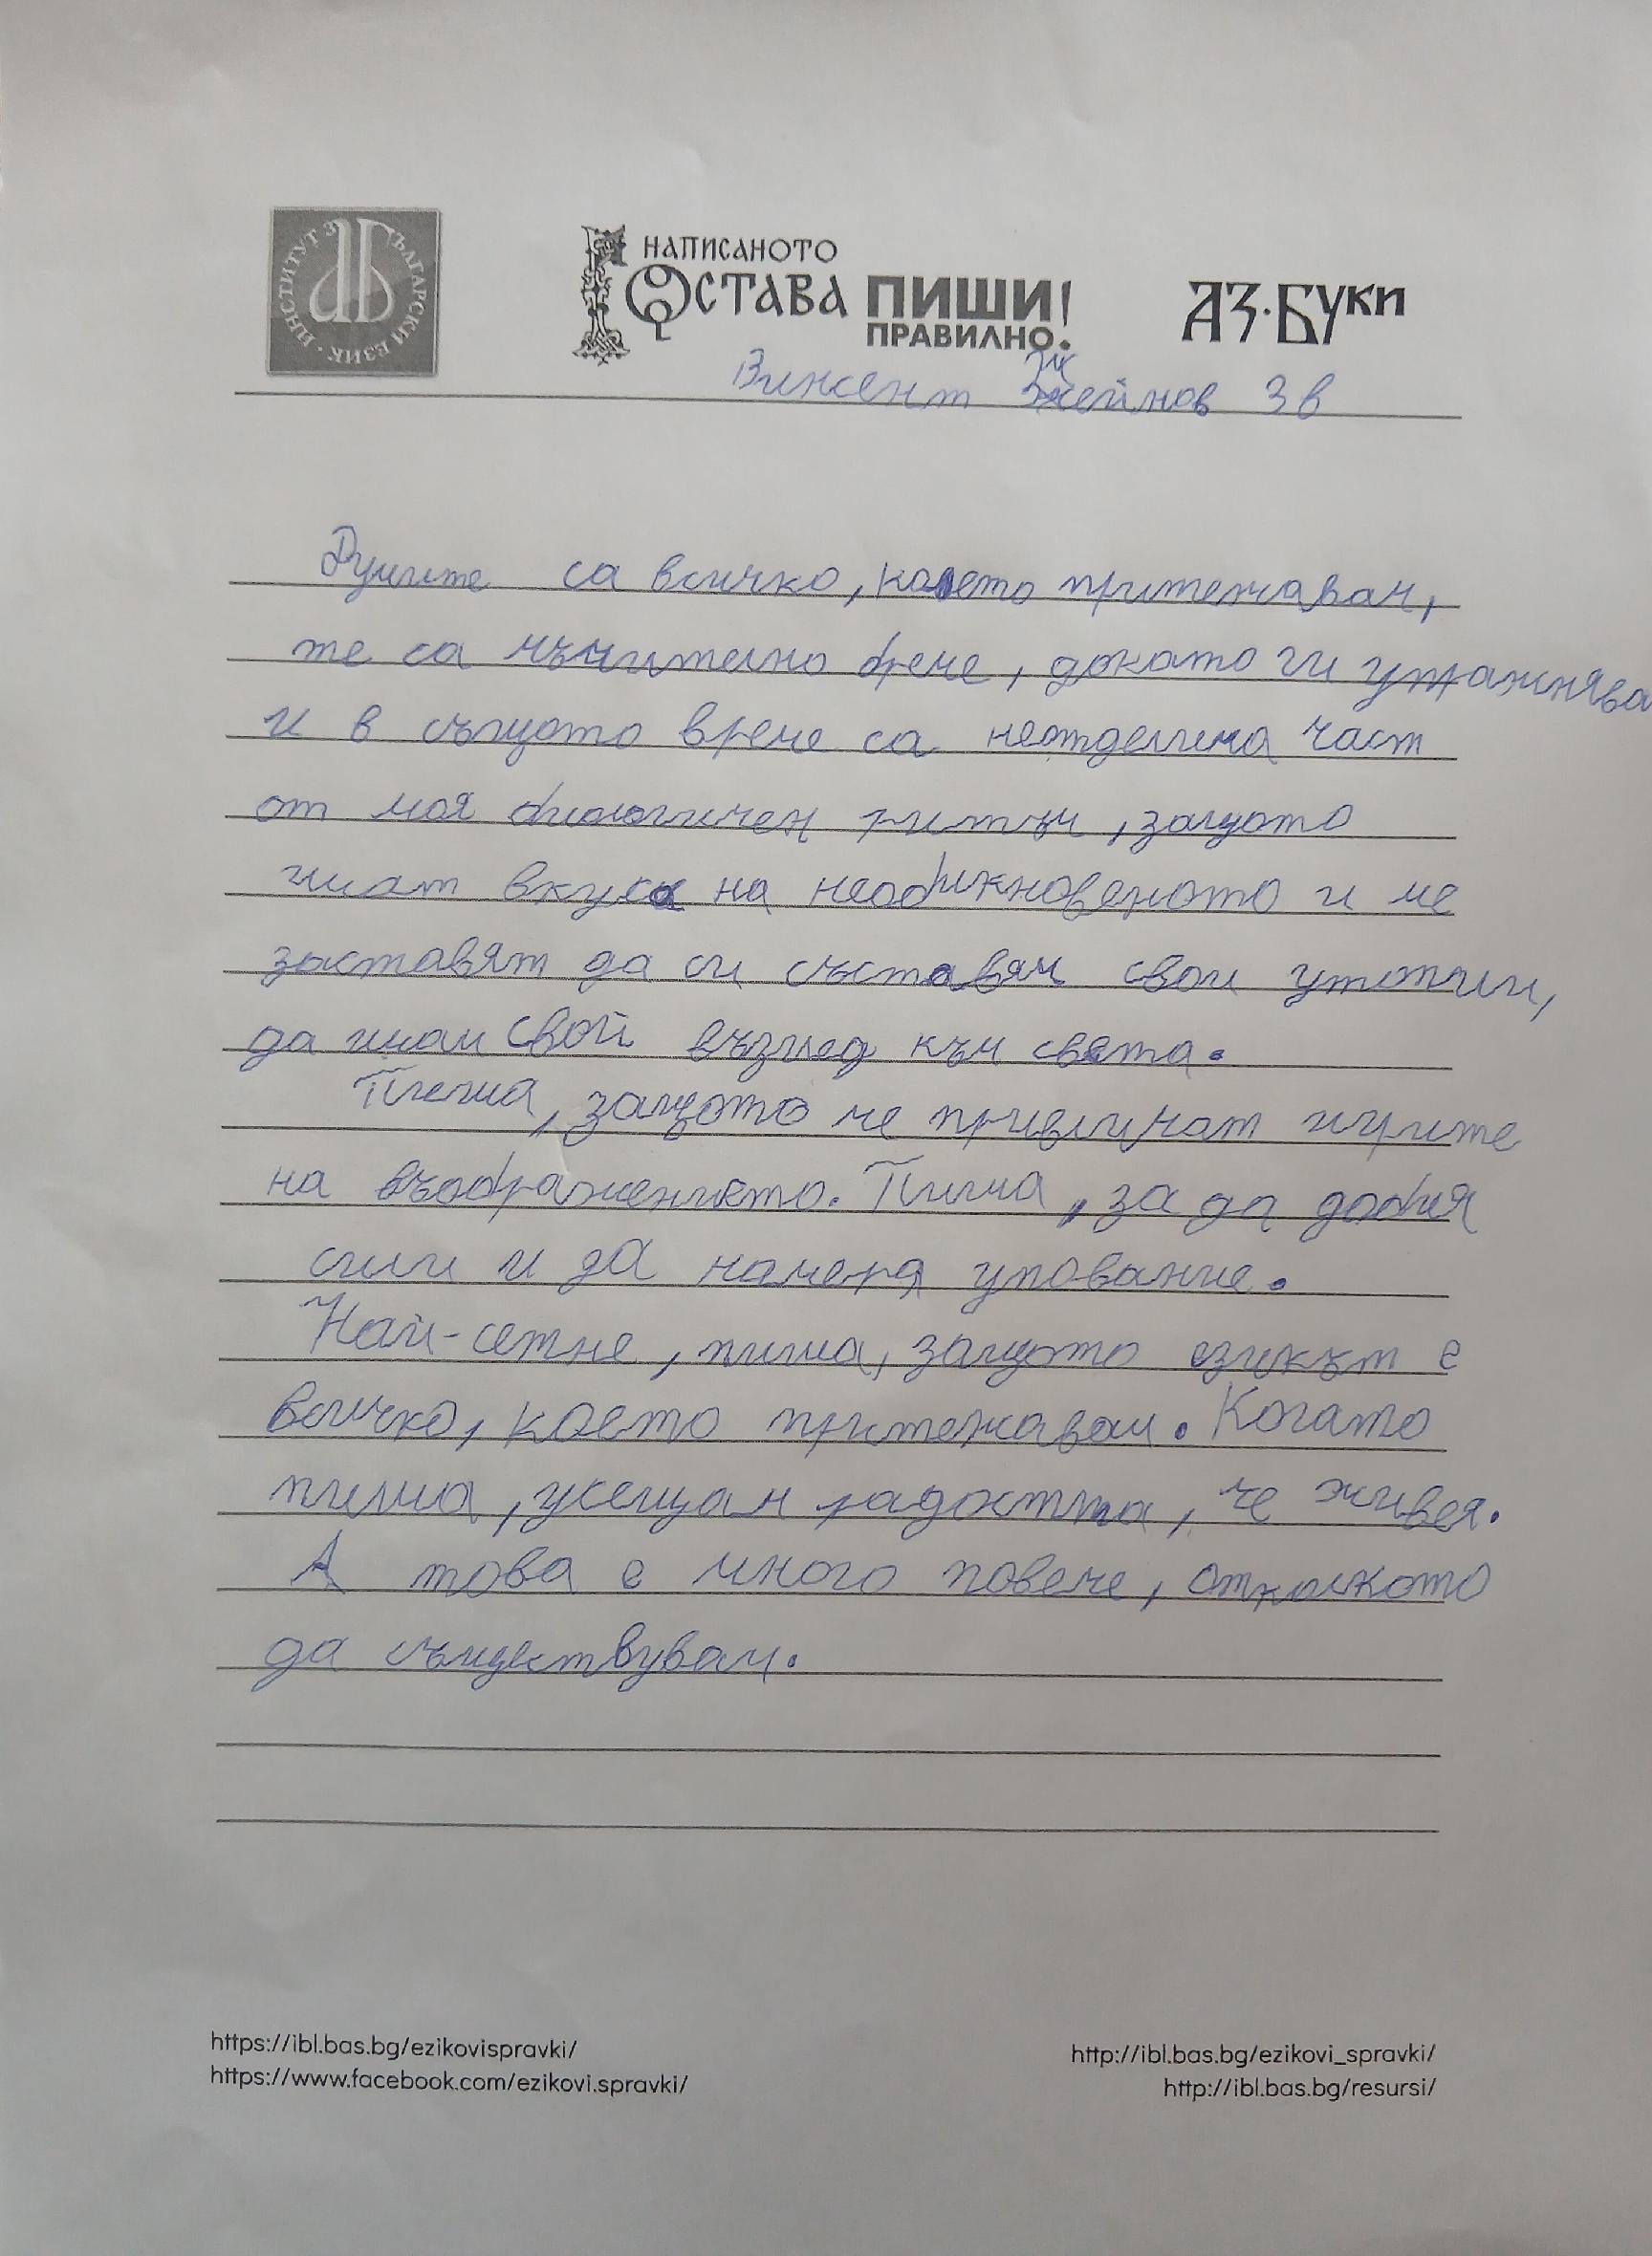 ИНСТИТУТ ЗА БЪЛГАРСКИ ЕЗИК
НАПИСАНОТО
ОСТАВА ПИШИ!
ПРАВИЛНО.
АЗ·БУКИ
Винсент Жейнов 3 в
Думите са всичко, което притежавам,
те са мъчително бреме, докато ги упражнява
и в същото време са неотделима част
от моя биологичен ритъм, защото
имат вкуса на необикновеното и ме
заставят да си съставям свои утопии,
да имам свой възглед към света.
Пиша, защото ме привличат игрите
на въображението. Пиша, за да добия
сили и да намеря упование.
Най-сетне, пиша, защото езикът е
всичко, което притежавам. Когато
пиша, усещам радостта, че живея.
А това е много повече, отколкото
да съществувам.
https://ibl.bas.bg/ezikovispravki/
https://www.facebook.com/ezikovi.spravki/
http://ibl.bas.bg/ezikovi_spravki/
http://ibl.bas.bg/resursi/